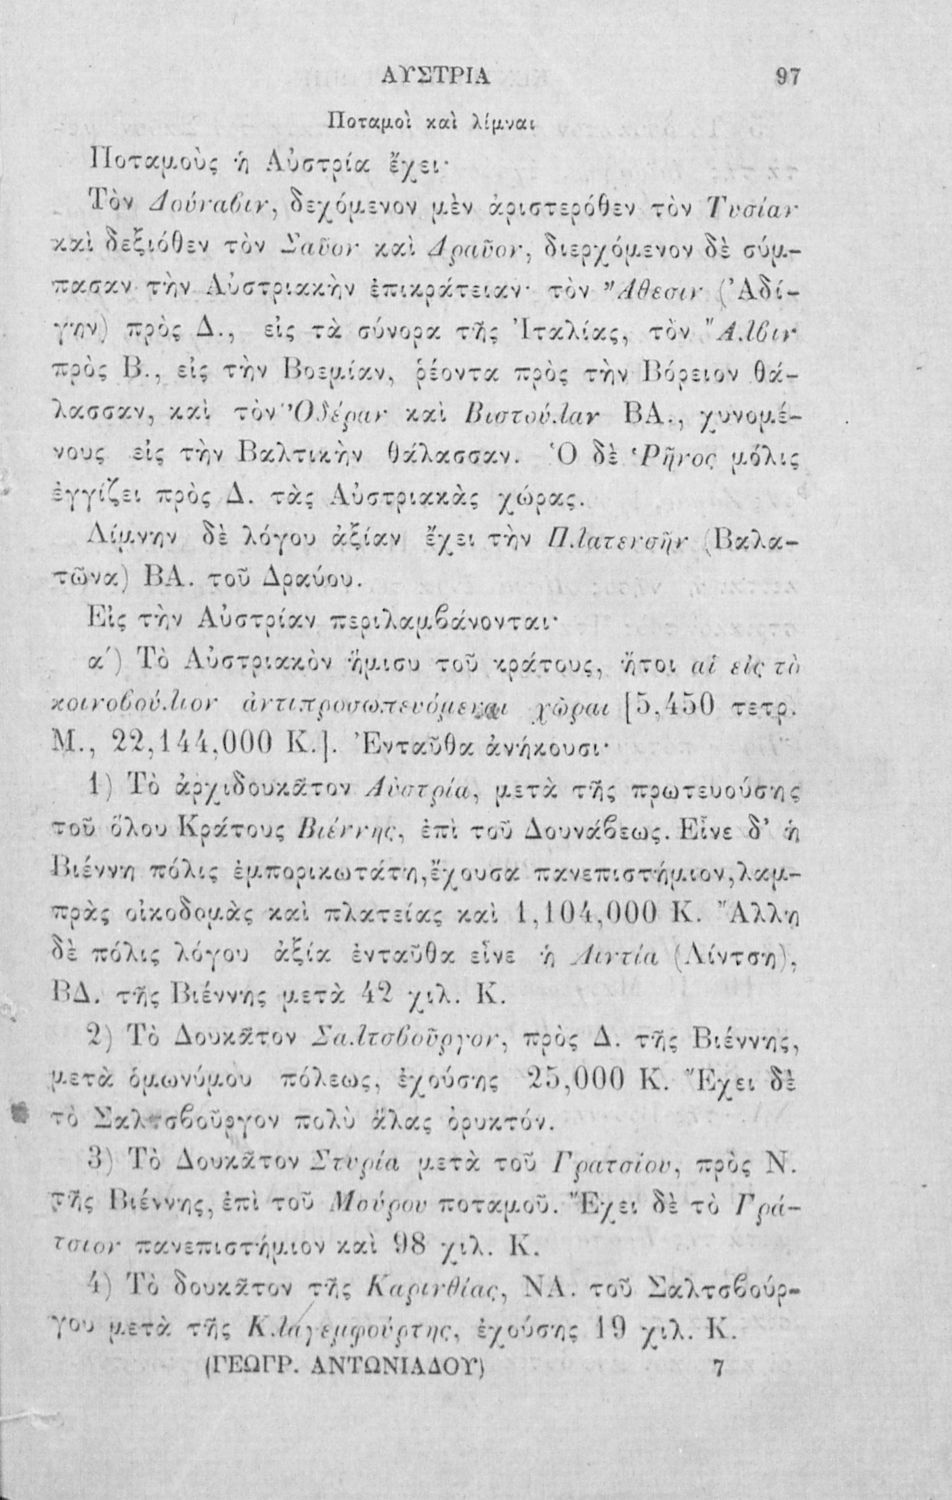 ΑΥΣΤΡΙΑ 97
Ποταμοὶ καὶ λίμναι
Ποταμοὺς ἡ Αὐστρία ἔχει·
Τὸν Δούναβιν, δεχόμενον μὲν ἀριστερόθεν τὸν Τυσίαν
καὶ δεξιόθεν τὸν Σαῦον καὶ Δραῦον, διερχόμενον δὲ σύμ-
πασαν τὴν Αὐστριακὴν ἐπικράτειαν· τὸν Ἄθεσιν (Ἀδί-
γην) πρὸς Δ., εἰς τὰ σύνορα τῆς Ἰταλίας, τὸν Ἄλβιν
πρὸς Β., εἰς τὴν Βοεμίαν, ῥέοντα πρὸς τὴν Βόρειον θά-
λασσαν, καὶ τὸν Ὀδέραν καὶ Βιστούλαν ΒΑ., χυνομέ-
νους εἰς τὴν Βαλτικὴν θάλασσαν. Ὁ δὲ Ῥῆνος μόλις
ἐγγίζει πρὸς Δ. τὰς Αὐστριακὰς χώρας.
Λίμνην δὲ λόγου ἀξίαν ἔχει τὴν Πλατενσῆν (Βαλα-
τῶνα) ΒΑ. τοῦ Δραύου.
Εἰς τὴν Αὐστρίαν περιλαμβάνονται·
α΄) Τὸ Αὐστριακὸν ἥμισυ τοῦ κράτους, ἤτοι αἱ εἰς τὸ
κοινοβούλιον ἀντιπροσωπευόμεναι χῶραι [5,450 τετρ.
Μ., 22,144,000 Κ.]. Ἐνταῦθα ἀνήκουσι·
1) Τὸ ἀρχιδουκᾶτον Αὐστρία, μετὰ τῆς πρωτευούσης
τοῦ ὅλου Κράτους Βιέννης, ἐπὶ τοῦ Δουνάβεως. Εἶνε δ' ἡ
Βιέννη πόλις ἐμπορικωτάτη, ἔχουσα πανεπιστήμιον, λαμ-
πρὰς οἰκοδομὰς καὶ πλατείας καὶ 1,104,000 Κ. Ἄλλη
δὲ πόλις λόγου ἀξία ἐνταῦθα εἶνε ἡ Λιντία (Λίντση),
ΒΔ. τῆς Βιέννης μετὰ 42 χιλ. Κ.
2) Τὸ Δουκᾶτον Σαλτσβοῦργον, πρὸς Δ. τῆς Βιέννης,
μετὰ ὁμωνύμου πόλεως, ἐχούσης 25,000 Κ. Ἔχει δὲ
τὸ Σαλτσβοῦργον πολὺ ἅλας ὀρυκτόν.
3) Τὸ Δουκᾶτον Στυρία μετὰ τοῦ Γρατσίου, πρὸς Ν.
τῆς Βιέννης, ἐπὶ τοῦ Μούρου ποταμοῦ. Ἔχει δὲ τὸ Γρά-
τσιον πανεπιστήμιον καὶ 98 χιλ. Κ.
4) Τὸ δουκᾶτον τῆς Καρινθίας, ΝΑ. τοῦ Σαλτσβούρ-
γου μετὰ τῆς Κλαγεμφούρτης, ἐχούσης 19 χιλ. Κ.
(ΓΕΩΓΡ. ΑΝΤΩΝΙΑΔΟΥ) 7